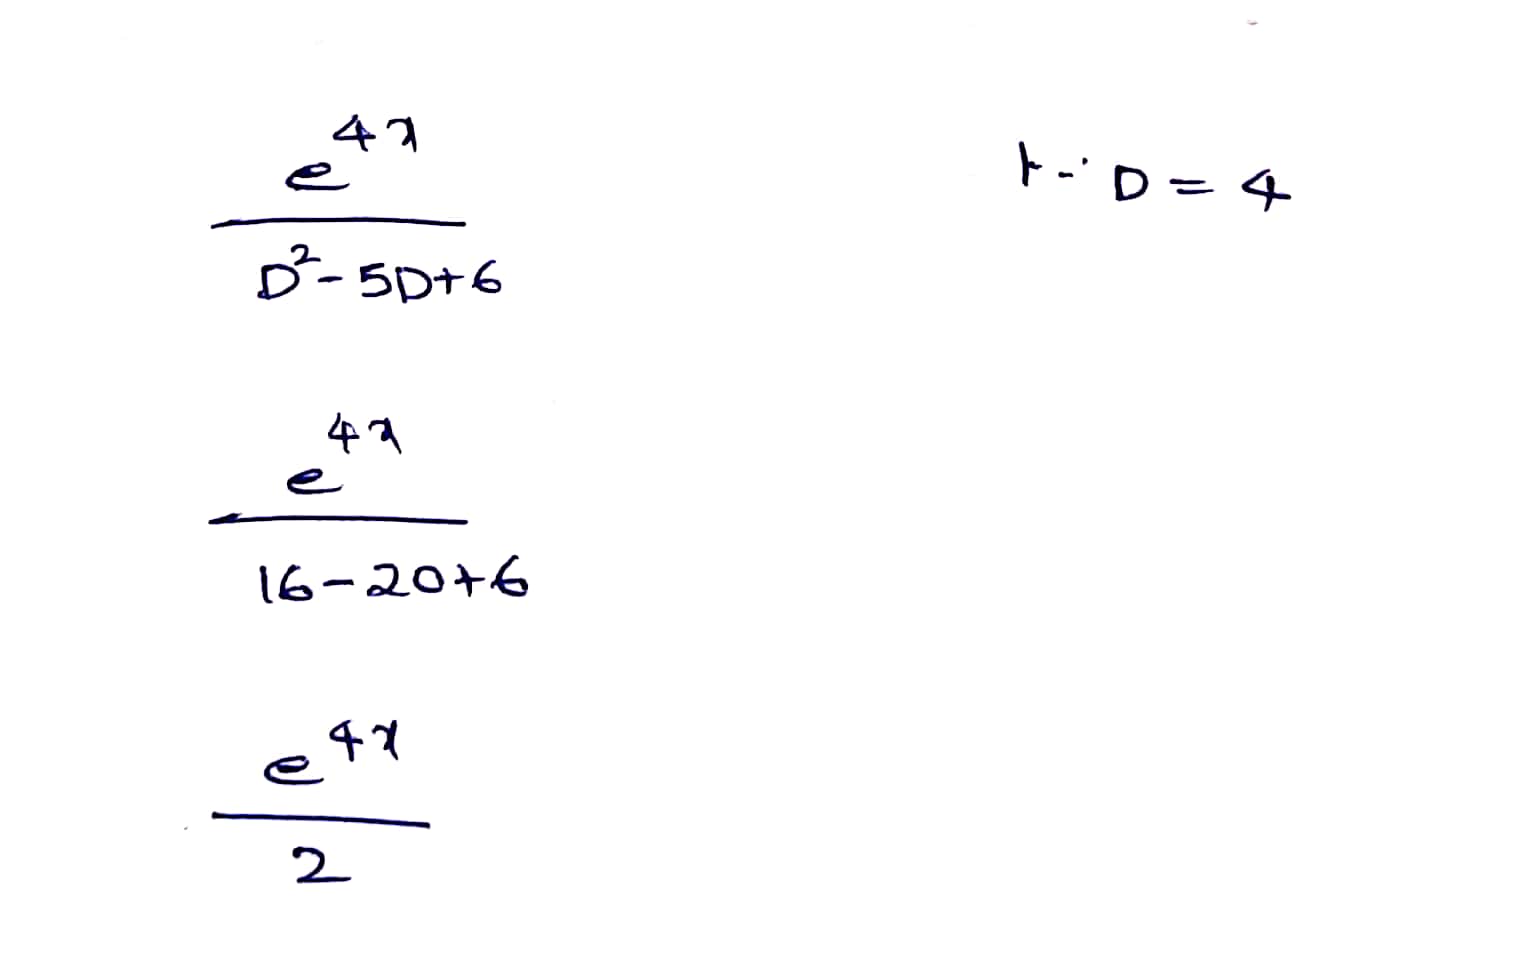 e^{4x}
D² - 5D + 6
D = 4
e^{4x}
16 - 20 + 6
e^{4x}
2